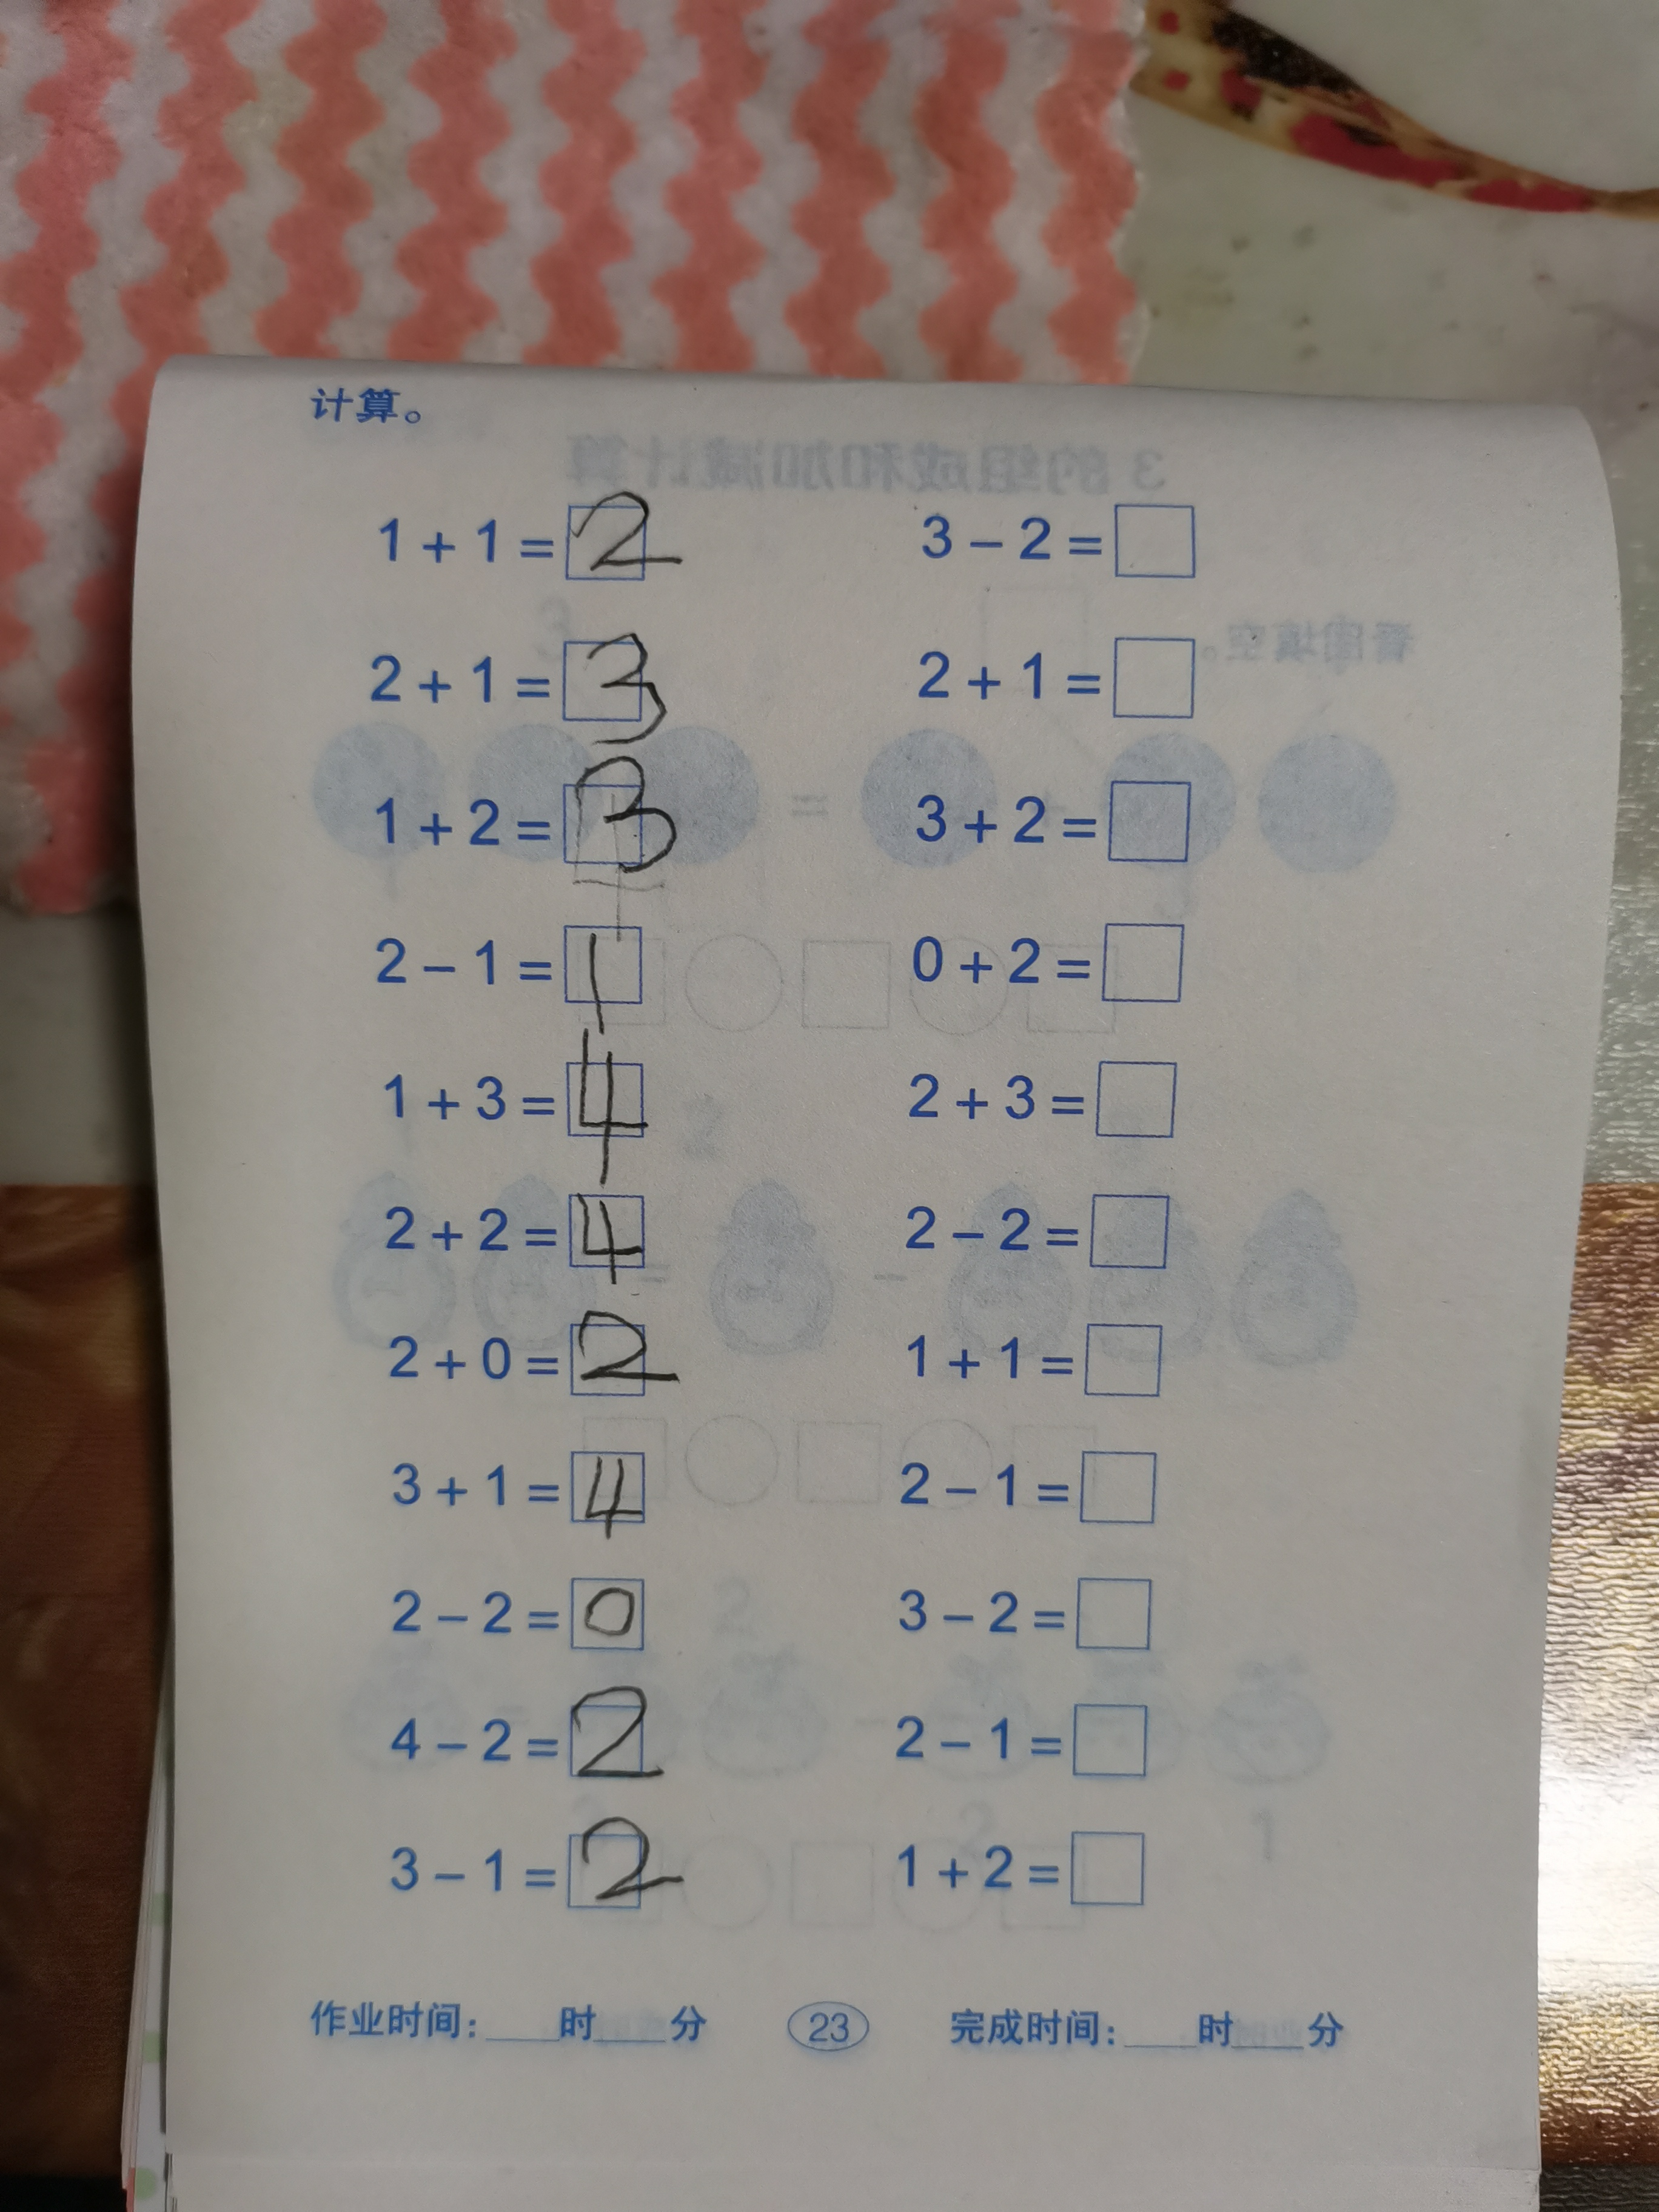 计算。
1 + 1 = 2 3 − 2 =
2 + 1 = 3 2 + 1 =
1 + 2 = 3 3 + 2 =
2 − 1 = 1 0 + 2 =
1 + 3 = 4 2 + 3 =
2 + 2 = 4 2 − 2 =
2 + 0 = 2 1 + 1 =
3 + 1 = 4 2 − 1 =
2 − 2 = 0 3 − 2 =
4 − 2 = 2 2 − 1 =
3 − 1 = 2 1 + 2 =
作业时间:____时____分 23 完成时间:____时____分